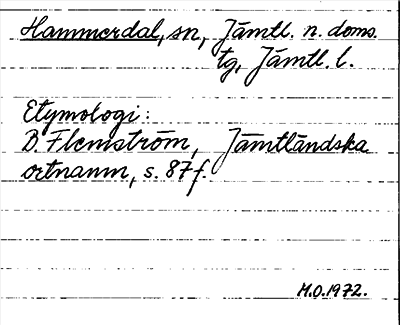 Hammerdal, sn, Jämtl. n. doms.
tg, Jämtl. l.
Etymologi:
B. Flemström, Jämtländska
ortnamn, s. 87 f.
M.O. 1972.